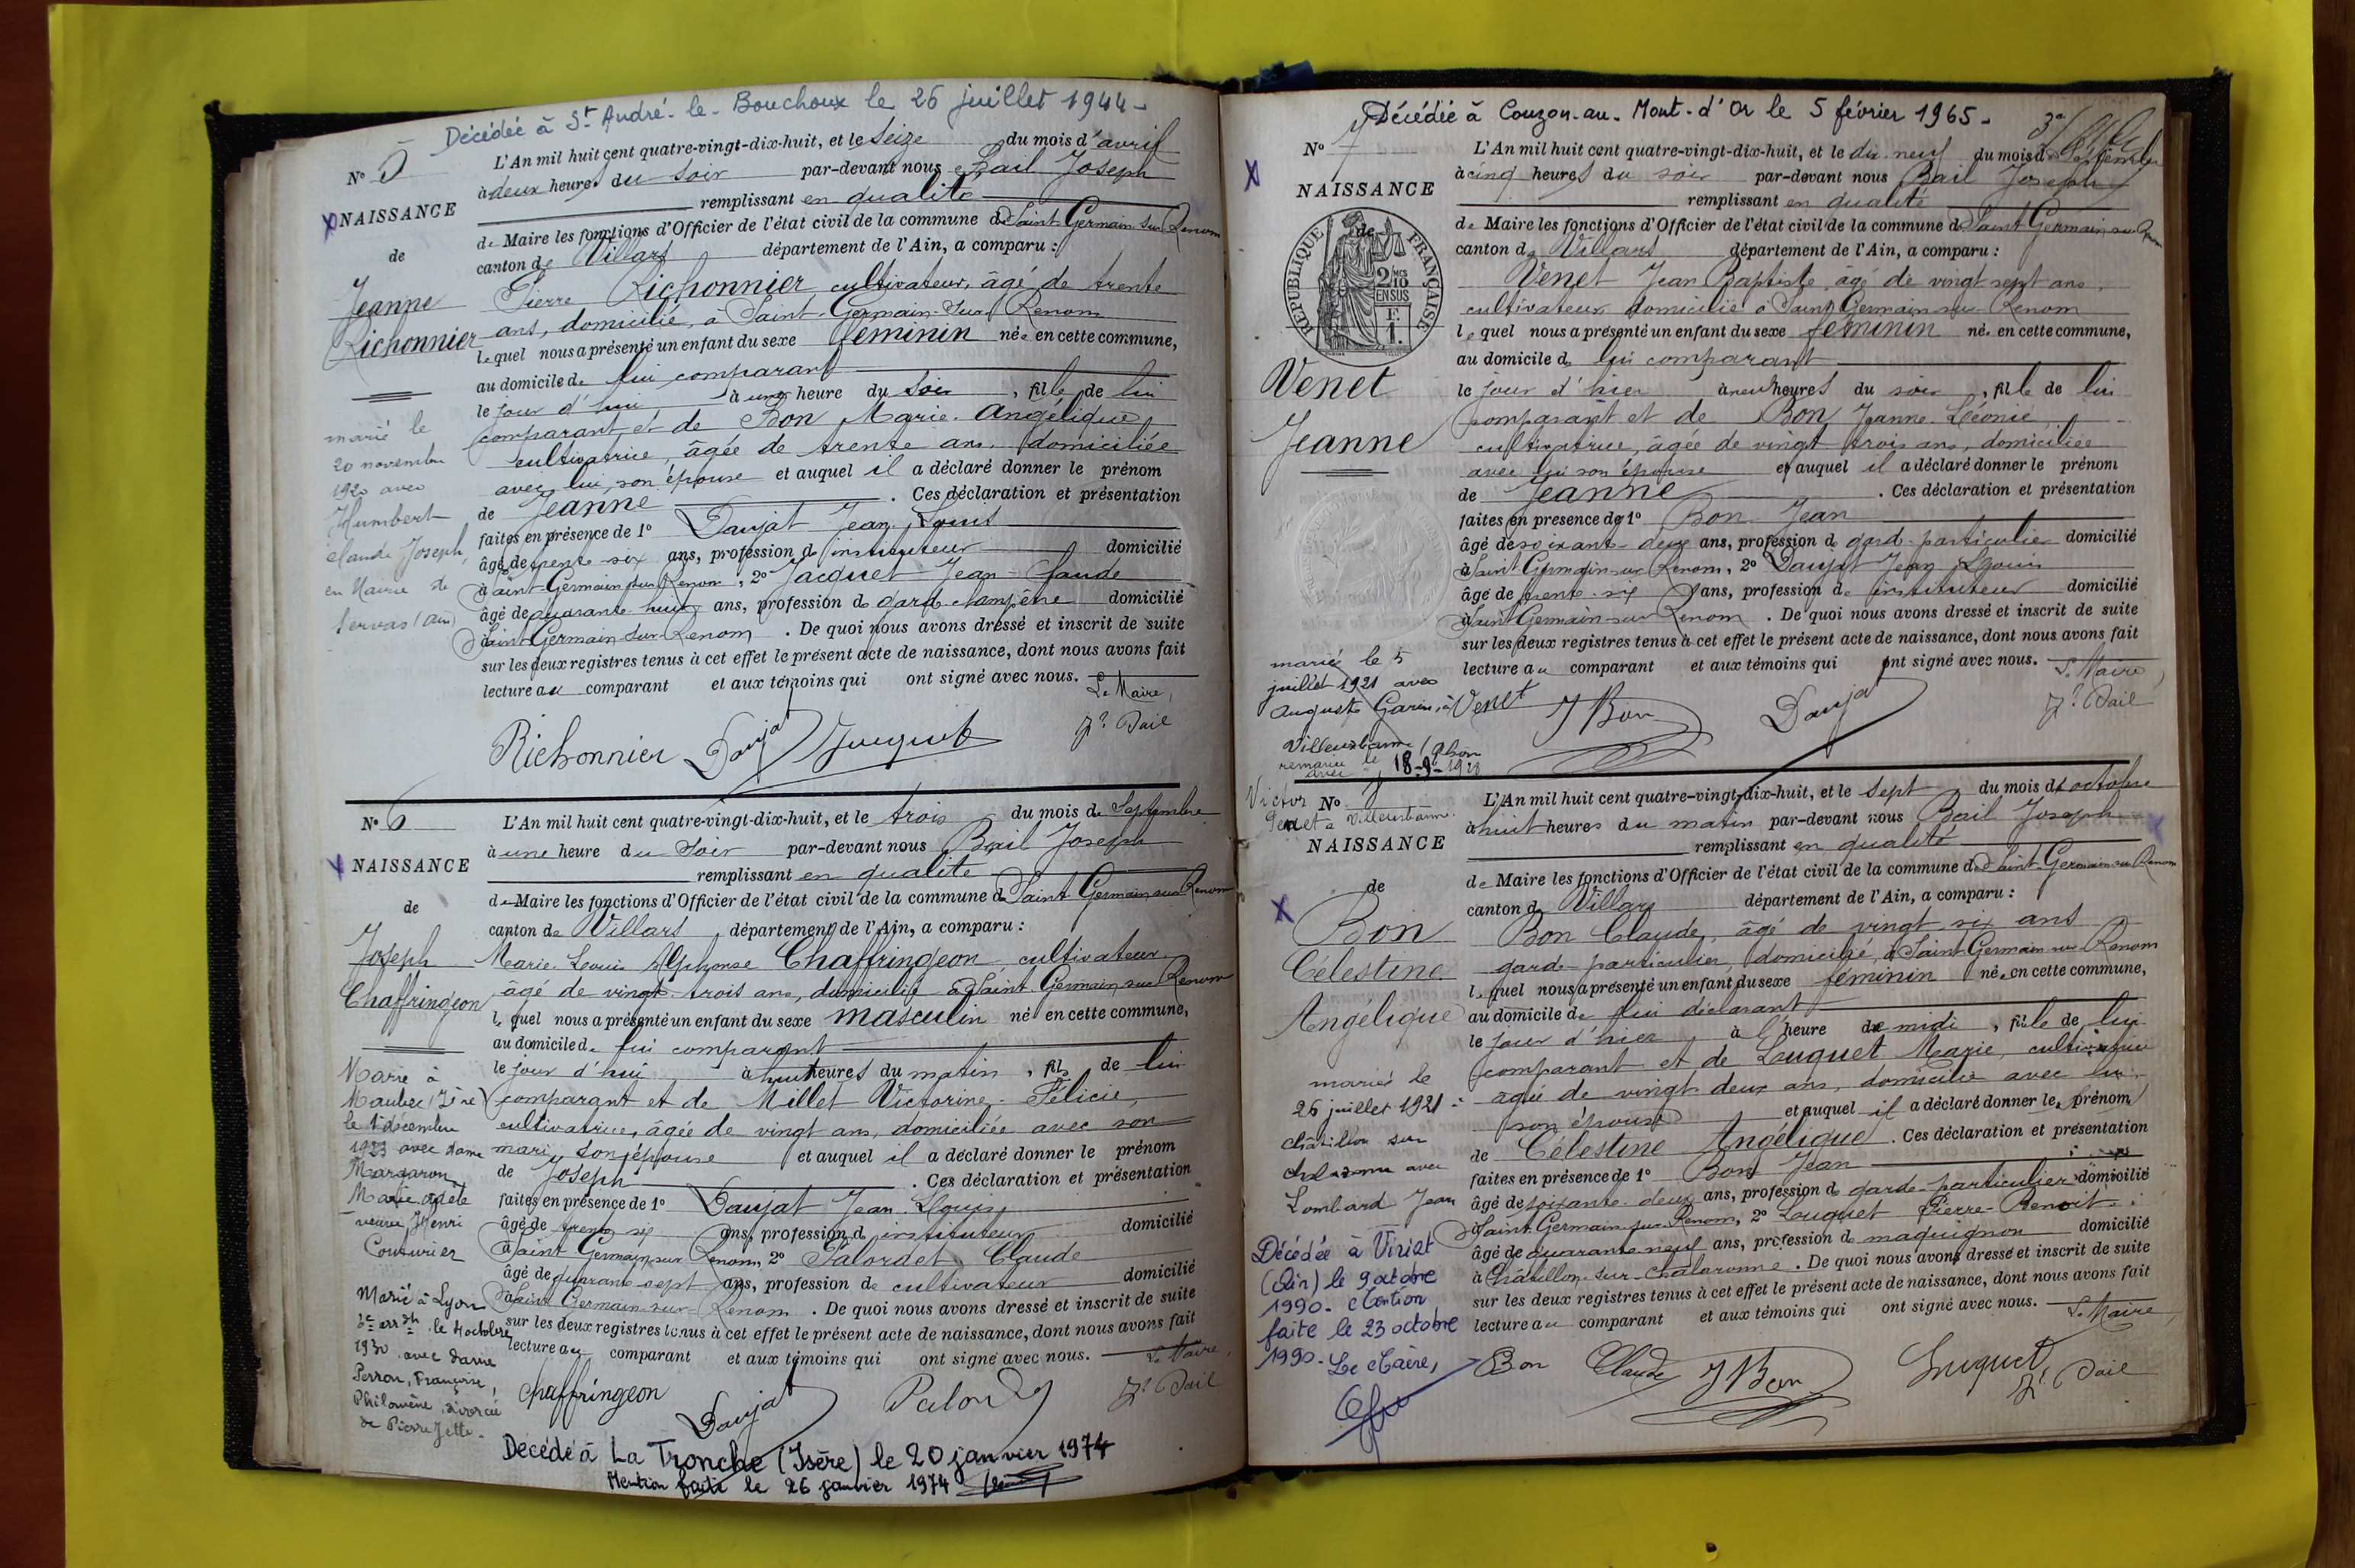 Décédée à St André-le-Bouchoux le 26 juillet 1944-
N° 5
NAISSANCE
de
Jeanne
Richonnier
marié le
20 novembre
1920 avec
Humbert
claude Joseph,
en Mairie de
Servas (ain)
L'An mil huit cent quatre-vingt-dix-huit, et le Seize du mois d'avril
à deux heures du Soir par-devant nous Bail Joseph
remplissant en qualité
de Maire les fonctions d'Officier de l'état civil de la commune de Saint Germain sur Renom
canton de Villars département de l'Ain, a comparu :
Pierre Richonnier cultivateur, âgé de trente
ans, domicilié, à Saint-Germain-Sur Renom
lequel nous a présenté un enfant du sexe féminin née en cette commune,
au domicile de lui comparant
le jour d'hui à une heure du Soir, fille de lui
comparant et de Bon Marie-Angélique,
cultivatrice, âgée de trente ans, domiciliée
avec lui, son épouse et auquel il a déclaré donner le prénom
de Jeanne . Ces déclaration et présentation
faites en présence de 1° Daujat Jean Louis
âgé de trente six ans, profession d'instituteur domicilié
à Saint-Germain sur Renom, 2° Jacquet Jean-Claude
âgé de quarante huit ans, profession de garde champêtre domicilié
à Saint Germain sur Renom . De quoi nous avons dressé et inscrit de suite
sur les deux registres tenus à cet effet le présent acte de naissance, dont nous avons fait
lecture au comparant et aux témoins qui ont signé avec nous. Le Maire,
Richonnier Daujat Jacquet Jh Bail
N° 6
NAISSANCE
de
Joseph
Chaffringeon
Marié à
Maubec (Isère)
le 1er décembre
1923 avec dame
Margaron
Marie Adèle
veuve Henri
Couturier
Marié à Lyon
le 4 octobre
1930 avec dame
Perron, Françoise,
Philomène divorcée
de Pierre
L'An mil huit cent quatre-vingt-dix-huit, et le trois du mois de Septembre
à une heure du Soir par-devant nous Bail Joseph
remplissant en qualité
de Maire les fonctions d'Officier de l'état civil de la commune de Saint Germain sur Renom
canton de Villars département de l'Ain, a comparu :
Marie-Louis Alphonse Chaffringeon cultivateur
âgé de vingt-trois ans, domicilié à Saint Germain sur Renom
lequel nous a présenté un enfant du sexe masculin né en cette commune,
au domicile de lui comparant
le jour d'hui à huit heures du matin, fils de lui
comparant et de Millet Victorine-Félicie,
cultivatrice, âgée de vingt ans, domiciliée avec son
mari, son épouse et auquel il a déclaré donner le prénom
de Joseph . Ces déclaration et présentation
faites en présence de 1° Daujat Jean Louis,
âgé de trente six ans, profession d'instituteur domicilié
à Saint Germain sur Renom, 2° Palordet Claude
âgé de quarante sept ans, profession de cultivateur domicilié
à Saint Germain-sur-Renom . De quoi nous avons dressé et inscrit de suite
sur les deux registres tenus à cet effet le présent acte de naissance, dont nous avons fait
lecture au comparant et aux témoins qui ont signé avec nous. Le Maire,
chaffringeon Daujat Jh Bail
Décédé à La Tronche (Isère) le 20 janvier 1974
Mention faite le 26 janvier 1974
Décédée à Couzon-au-Mont-d'Or le 5 février 1965-
N° 7
NAISSANCE
de
RÉPUBLIQUE FRANÇAISE
2/10 EN SUS
Venet
Jeanne
mariée le 5
juillet 1921 avec
Auguste Garin, à
Villeurbanne (Rhône
remariée le 18-9-1928
avec
Victor
Venet à Villeurbanne.
L'An mil huit cent quatre-vingt-dix-huit, et le dix neuf du mois de Septembre
à cinq heures du soir par-devant nous Bail Joseph
remplissant en qualité
de Maire les fonctions d'Officier de l'état civil de la commune de Saint Germain sur Renom
canton de Villars département de l'Ain, a comparu :
Venet Jean Baptiste, âgé de vingt sept ans,
cultivateur domicilié à Saint Germain sur Renom
lequel nous a présenté un enfant du sexe féminin née en cette commune,
au domicile de lui comparant
le jour d'hier à neuf heures du soir, fille de lui
comparant et de Bon Jeanne-Léonie
cultivatrice, âgée de vingt trois ans, domiciliée
avec lui son épouse et auquel il a déclaré donner le prénom
de Jeanne . Ces déclaration et présentation
faites en présence de 1° Bon Jean
âgé de soixante-deux ans, profession de garde-particulier domicilié
à Saint Germain sur Renom, 2° Daujat Jean Louis
âgé de trente-six ans, profession d'instituteur domicilié
à Saint Germain sur Renom . De quoi nous avons dressé et inscrit de suite
sur les deux registres tenus à cet effet le présent acte de naissance, dont nous avons fait
lecture au comparant et aux témoins qui ont signé avec nous. Le Maire,
Venet J Bon Daujat Jh Bail
N°
NAISSANCE
de
Bon
Célestine
Angélique
mariée le
26 juillet 1921 à
châtillon sur
chalaronne avec
Lombard Jean
Décédée à Viriat
(Ain) le 9 octobre
1990. Mention
faite le 23 octobre
1990. Le Maire,
L'An mil huit cent quatre-vingt-dix-huit, et le Sept du mois d'octobre
à huit heures du matin par-devant nous Bail Joseph
remplissant en qualité
de Maire les fonctions d'Officier de l'état civil de la commune de Saint-Germain sur Renom
canton de Villars département de l'Ain, a comparu :
Bon Claude, âgé de vingt six ans
garde-particulier, domicilié à Saint Germain sur Renom
lequel nous a présenté un enfant du sexe féminin née en cette commune,
au domicile de lui déclarant
le jour d'hier à l'heure de midi, fille de lui
comparant et de Luquet Marie, cultivatrice
âgée de vingt-deux ans, domicilié avec lui
son épouse et auquel il a déclaré donner les prénom
de Célestine Angélique . Ces déclaration et présentation
faites en présence de 1° Bon Jean
âgé de soixante-deux ans, profession de garde-particulier domicilié
à Saint Germain sur Renom, 2° Luquet Pierre-Benoit
âgé de quarante neuf ans, profession de maquignon domicilié
à Châtillon-sur-Chalaronne. De quoi nous avons dressé et inscrit de suite
sur les deux registres tenus à cet effet le présent acte de naissance, dont nous avons fait
lecture au comparant et aux témoins qui ont signé avec nous. Le Maire,
Bon Claude J Bon Luquet Jh Bail